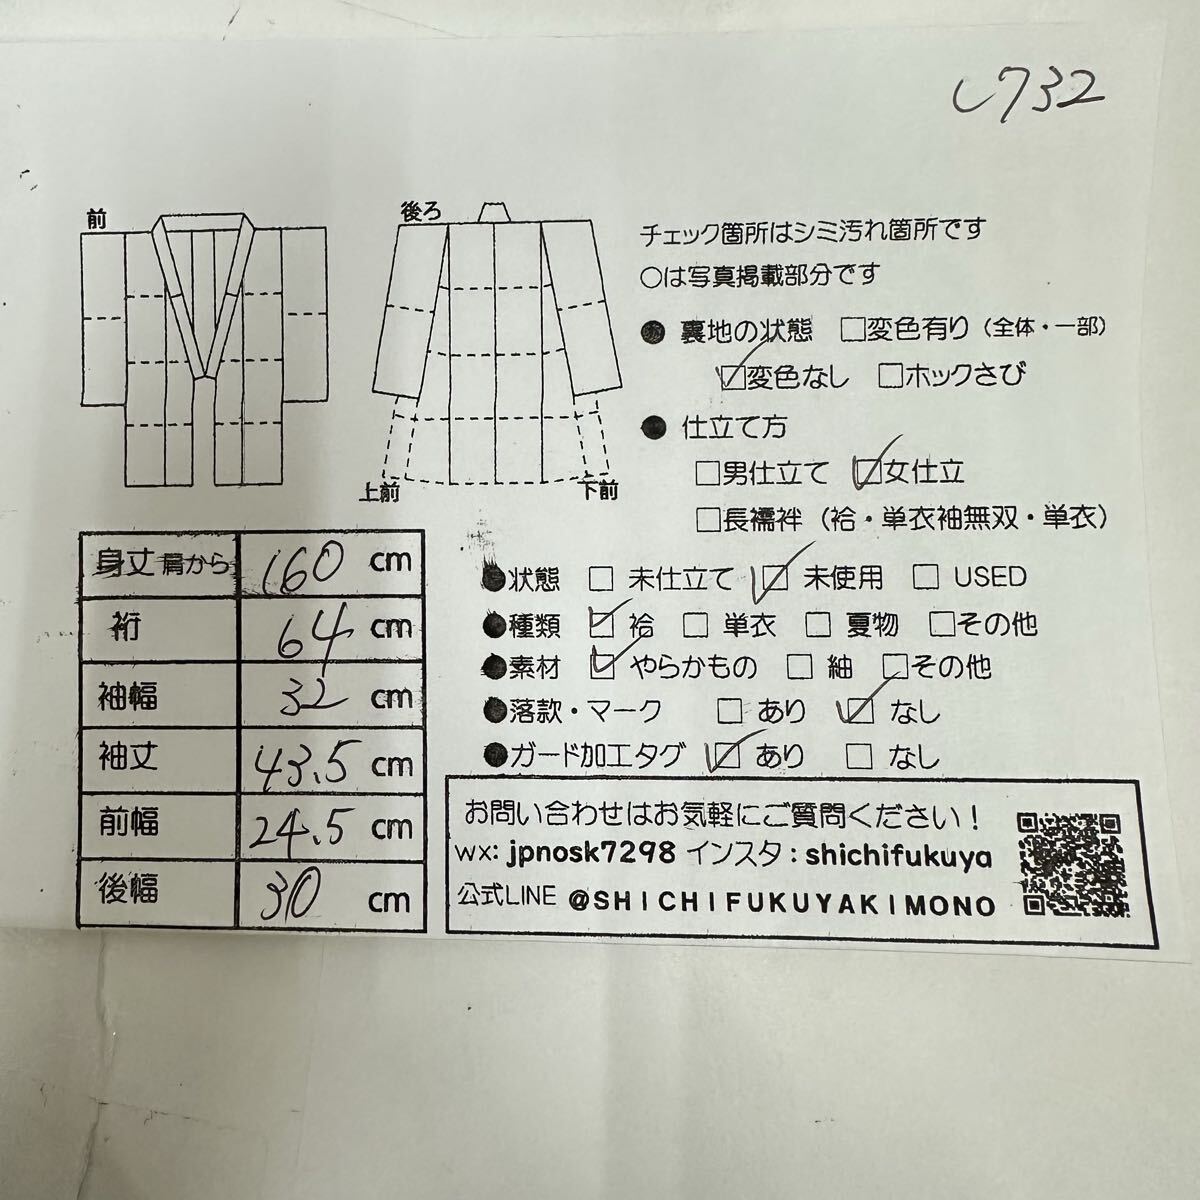 し732
前
後ろ
上前
下前
チェック箇所はシミ汚れ箇所です
○は写真掲載部分です
●裏地の状態 □変色有り（全体・一部）
☑変色なし □ホックさび
● 仕立て方
□男仕立て ☑女仕立
□長襦袢（袷・単衣袖無双・単衣）
●状態 □ 未仕立て ☑ 未使用 □ USED
●種類 ☑ 袷 □ 単衣 □ 夏物 □その他
●素材 ☑ やらかもの □ 紬 □その他
●落款・マーク □ あり ☑ なし
●ガード加工タグ ☑ あり □ なし
身丈 肩から 160 cm
裄 64 cm
袖幅 32 cm
袖丈 43.5 cm
前幅 24.5 cm
後幅 30 cm
お問い合わせはお気軽にご質問ください！
wx: jpnosk7298 インスタ : shichifukuya
公式LINE @SHICHIFUKUYAKIMONO